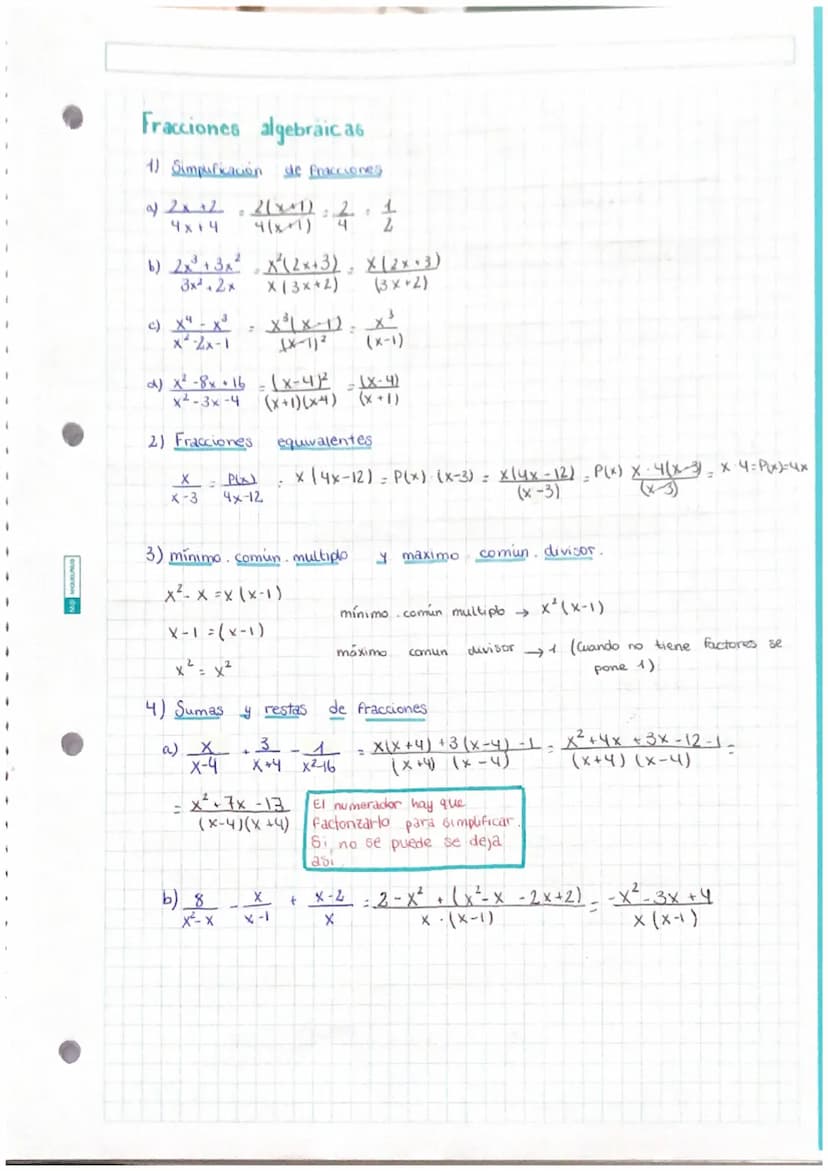 Fracciones algebraicas
1) Simplificación de fracciones
a) (2x+2)/(4x+4) = 2(x+1)/4(x+1) = 2/4 = 1/2
b) (2x³+3x²)/(3x²+2x) = x²(2x+3)/x(3x+2) = x(2x+3)/(3x+2)
c) (x⁴-x³)/(x²-2x-1) = x³(x-1)/(x-1)² = x³/(x-1)
d) (x²-8x+16)/(x²-3x-4) = (x-4)²/(x+1)(x-4) = (x-4)/(x+1)
2) Fracciones equivalentes
x/(x-3) = P(x)/(4x-12) = x(4x-12) = P(x)·(x-3) = x(4x-12)/(x-3) = P(x) x·4(x-3)/(x-3) = x·4=P(x)=4x
3) mínimo.común.multiplo y maximo común.divisor.
x²-x=x(x-1)
mínimo.común multiplo → x²(x-1)
x-1=(x-1)
máximo comun divisor → 1 (Cuando no tiene factores se
pone 1)
x²=x²
4) Sumas y restas de fracciones
a) x/(x-4) + 3/(x+4) - 1/(x²-16) = (x(x+4)+3(x-4)-1)/((x+4)(x-4)) = (x²+4x+3x-12-1)/((x+4)(x-4)) =
= (x²+7x-13)/((x-4)(x+4))
El numerador hay que
factorizarlo para simplificar.
Si no se puede se deja
asi.
b) 8/(x²-x) - x/(x-1) + (x-2)/x = (2-x²+(x²-x-2x+2))/(x·(x-1)) = (-x²-3x+4)/(x(x-1))
MIQUELRIUS